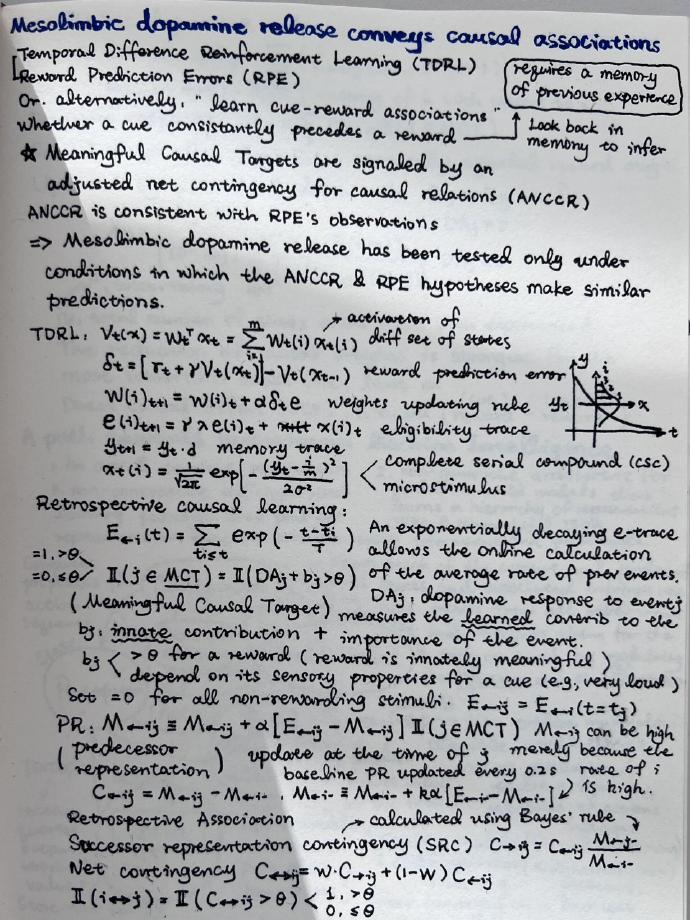 Mesolimbic dopamine release conveys causal associations
Temporal Difference Reinforcement Learning (TDRL)
Reward Prediction Errors (RPE)
requires a memory
of previous experience
Or. alternatively, "learn cue-reward associations"
Whether a cue consistantly precedes a reward
Look back in
memory to infer
★ Meaningful Causal Targets are signaled by an
adjusted net contingency for causal relations (ANCCR)
ANCCR is consistent with RPE's observations
=> Mesolimbic dopamine release has been tested only under
conditions in which the ANCCR & RPE hypotheses make similar
predictions.
activation of
diff set of states
TDRL: V_t(x) = w_t^T x_t = Σ_{i=1}^{m} w_t(i) x_t(i)
δ_t = [r_t + γV_t(x_t)] - V_t(x_{t-1}) reward prediction error
w(i)_{t+1} = w(i)_t + αδ_t e weights updating rule
e(i)_{t+1} = γλe(i)_t + x(i)_t eligibility trace
y_{t+1} = y_t · d memory trace
x_t(i) = 1/√2π exp[-(y_t - i/m)²/2σ²] < complete serial compound (csc)
microstimulus
y
y_t
i
x
t
Retrospective causal learning:
E_{←i}(t) = Σ_{t_i≤t} exp(-(t-t_i)/T) An exponentially decaying e-trace
allows the online calculation
of the average rate of prev events.
=1, >θ
=0, ≤θ
𝕀(j ∈ MCT) = 𝕀(DA_j + b_j > θ)
(Meaningful Causal Target)
DA_j: dopamine response to event j
measures the learned contrib to the
b_j: innate contribution + importance of the event.
b_j < >θ for a reward (reward is innately meaningful)
depend on its sensory properties for a cue (e.g., very loud)
Set =0 for all non-rewarding stimuli. E_{←ij} = E_{←i}(t=t_j)
PR: M_{←ij} ≡ M_{←ij} + α[E_{←ij} - M_{←ij}] 𝕀(j∈MCT) M_{←ij} can be high
(predecessor
representation)
update at the time of j
merely because the
rate of i
is high.
baseline PR updated every 0.2s
C_{←ij} = M_{←ij} - M_{←i-}, M_{←i-} ≡ M_{←i-} + kα[E_{←i-} - M_{←i-}]
Retrospective Association
calculated using Bayes' rule
Successor representation contingency (SRC) C_{→ij} = C_{←ij} M_{←j-}/M_{←i-}
Net contingency C_{↔ij} = w·C_{→ij} + (1-w) C_{←ij}
𝕀(i↔j) = 𝕀(C_{↔ij} > θ) < 1, >θ
0, ≤θ